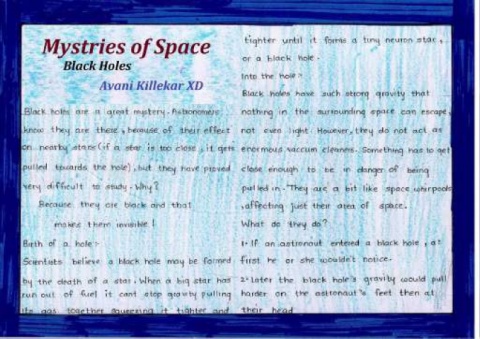 Mystries of Space
Black Holes
Avani Killekar XD
Black holes are a great mystery. Astronomers
know they are there, because of their effect
on nearby stars (if a star is too close, it gets
pulled towards the hole), but they have proved
very difficult to study. Why?
Because they are black and that
makes them invisible!
Birth of a hole:-
Scientists believe a black hole may be formed
by the death of a star. When a big star has
run out of fuel it cant stop gravity pulling
its gas together squeezing it tighter and
tighter until it forms a tiny neuron star,
or a black hole.
Into the hole:-
Black holes have such strong gravity that
nothing in the surrounding space can escape,
not even light. However, they do not act as
enormous vaccum cleaners. Something has to get
close enough to be in danger of being
pulled in. They are a bit like space whirpools
,affecting just their area of space.
What do they do?
1. If an astronaut entered a black hole, at
first he or she wouldn't notice.
2. Later the black hole's gravity would pull
harder on the astronaut's feet then at
their head